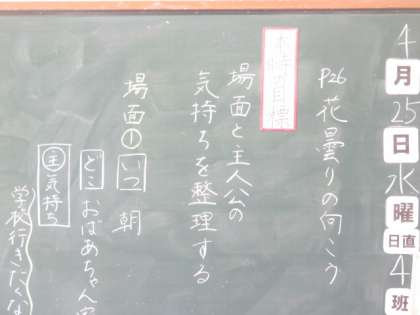 4月25日水曜
日直4班
P26 花曇りの向こう
本時の目標
場面と主人公の
気持ちを整理する
場面① いつ 朝
どこ おばあちゃん家
主気持ち
学校行きたくな